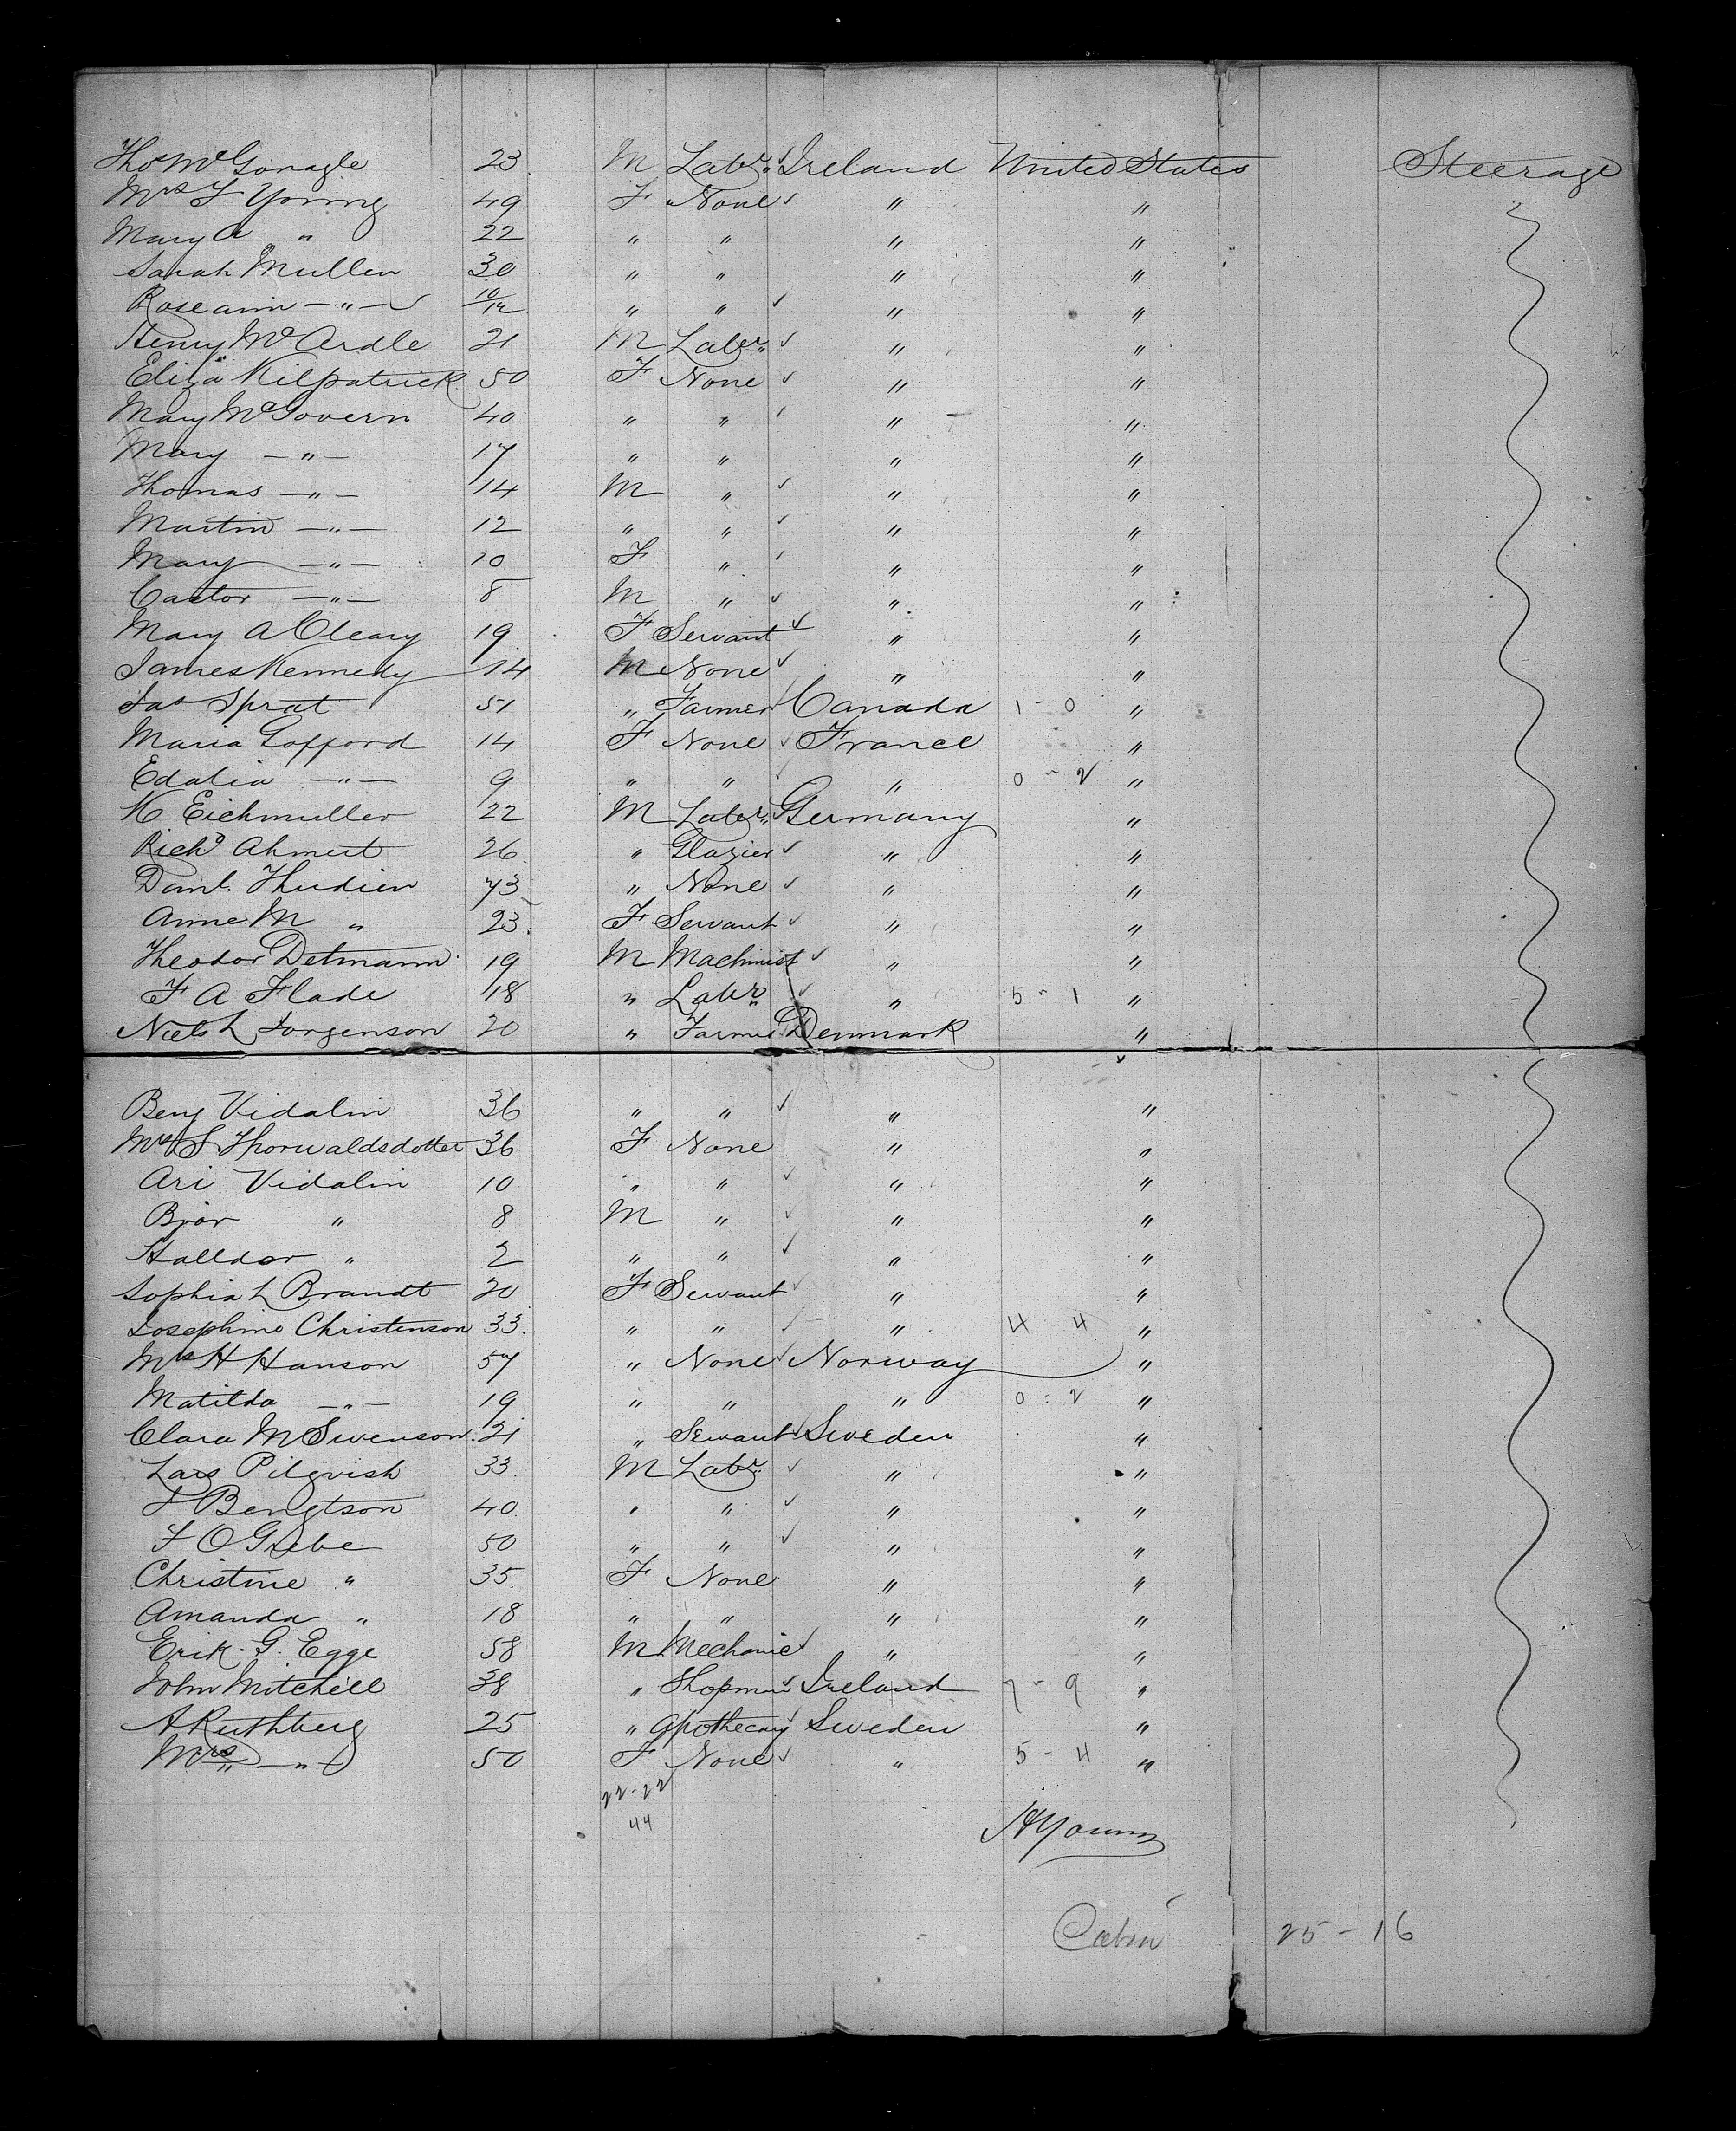 Thos McGonagle 23 M Labr. Ireland United States Steerage
Mrs J Young 49 F None " "
Mary A " 22 " " " "
Sarah Mullen 30 " " " "
Roseann —"— 10/12 " " " "
Henry McArdle 21 M Labr. " "
Eliza Kilpatrick 50 F None " "
Mary McGovern 40 " " " "
Mary —"— 17 " " " "
Thomas —"— 14 M " " "
Martin —"— 12 " " " "
Mary —"— 10 F " " "
Castor —"— 8 M " " "
Mary A Cleary 19 F Servant " "
James Kennedy 14 M None " "
Jas Sprat 51 " Farmer Canada 1 - 0 "
Maria Gofford 14 F None France "
Edalia —"— 9 " " " 0 - 2 "
K Eichmuller 22 M Labr. Germany "
Richd Ahmert 26 " Glazier " "
Danl. Thudien 73 " None " "
Anne M " 23 F Servant " "
Theodor Detmann 19 M Machinist " "
F A Flade 18 " Labr " 5 - 1 "
Niels L Jorgenson 20 " Farmer Denmark "
Benj Vidalin 36 " " " "
Mrs S Thorwaldsdotter 36 F None " "
Ari Vidalin 10 " " " "
Bjor " 8 M " " "
Halldor " 2 " " " "
Sophia L Brandt 20 F Servant " "
Josephine Christenson 33 " " " 4 4 "
Mrs H Hanson 57 " None Norway "
Matilda —"— 19 " " " 0 - 2 "
Clara M Swenson 21 " Servant Sweden "
Lars Pilqvist 33 M Labr. " "
J Bengtson 40 " " " "
F O Grebe 50 " " " "
Christine " 35 F None " "
Amanda " 18 " " " "
Erik. G. Egge 58 M Mechanic " "
John Mitchell 38 " Shopman Ireland 7 - 9 "
A Ruthberg 25 " Apothecary Sweden "
Mrs " —"— 50 F None " 5 - 4 "
22-22
44
H Young
Cabin 25 - 16